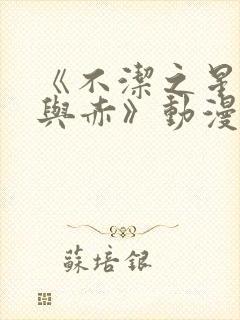 《不潔之星
與赤》動漫
蘇培銀